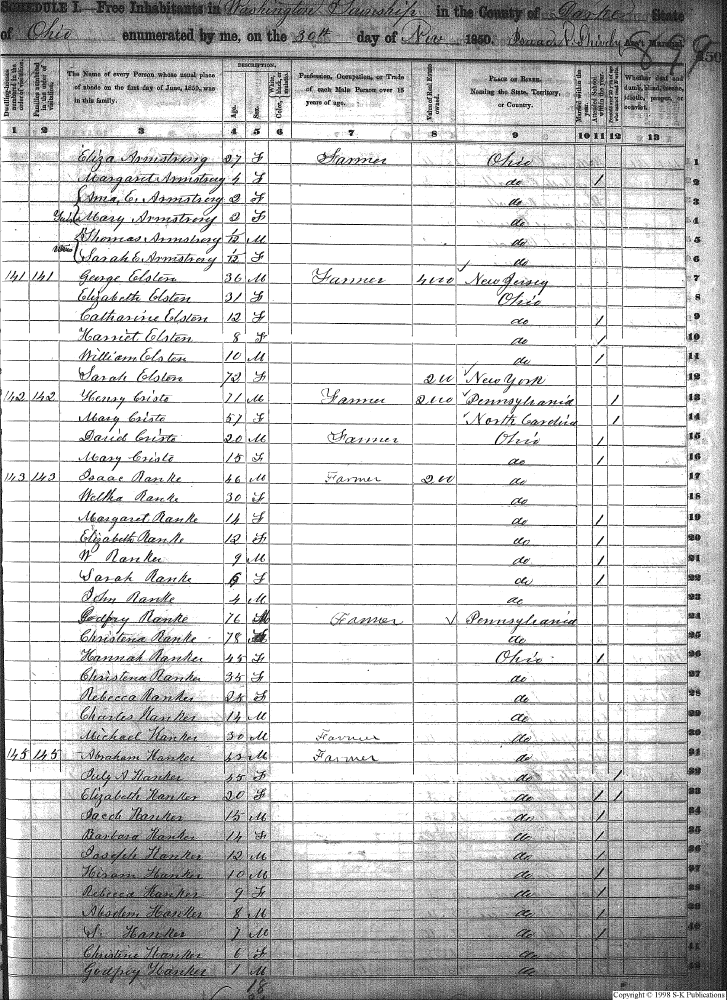 SCHEDULE I.—Free Inhabitants in Washington Township in the County of Darke State
of Ohio enumerated by me, on the 30th day of Nov 1850. Ass't Marshal.
899
450
Dwelling-houses numbered in the order of visitation.
Families numbered in the order of visitation.
The Name of every Person whose usual place of abode on the first day of June, 1850, was in this family.
DESCRIPTION.
Age.
Sex.
Color, White, black, or mulatto.
Profession, Occupation, or Trade of each Male Person over 15 years of age.
Value of Real Estate owned.
PLACE OF BIRTH. Naming the State, Territory, or Country.
Married within the year.
Attended School within the year.
Whether deaf and dumb, blind, insane, idiotic, pauper, or convict.
1 2 3 4 5 6 7 8 9 10 11 12 13
Eliza Armstrong 27 F Farmer Ohio 1
Margaret Armstrong 4 F do / 2
Ama E. Armstrong 2 F do 3
Mary Armstrong 2 F do 4
Thomas Armstrong 1/12 M do 5
Sarah E Armstrong 1/12 F do 6
141 141 George Elston 36 M Farmer 4000 New Jersey 7
Elizabeth Elston 31 F Ohio 8
Catharine Elston 12 F do / 9
Harriet Elston 8 F do / 10
William Elston 10 M do / 11
Sarah Elston 72 F 200 New York 12
142 142 Henry Criste 71 M Farmer 2000 Pennsylvania / 13
Mary Criste 57 F North Carolina / 14
David Criste 20 M Farmer Ohio / 15
Mary Criste 15 F do / 16
143 143 Isaac Ranke 46 M Farmer 200 do 17
Ranke 30 F do 18
Margaret Ranke 14 F do / 19
Elizabeth Ranke 12 F do / 20
W Ranker 9 M do / 21
Sarah Ranke 6 F do / 22
John Ranke 4 M do 23
Godfry Ranke 76 M Farmer Pennsylvania 24
Christena Ranke 78 do 25
Hannah Ranker 45 F Ohio / 26
Christena Ranker 35 F do 27
Rebecca Ranker 25 F do 28
Charles Hanker 14 M do 29
Michael Hanker 30 M Farmer do 30
145 145 Abraham Hanker 43 M Farmer do 31
July A Hanker 45 F do / 32
Elizabeth Hanker 20 F do / / 33
Jacob Hanker 15 M do / 34
Barbara Hanker 14 F do / 35
Joseph Hanker 12 M do / 36
Hiram Hanker 10 M do / 37
Rebecca Hanker 9 F do / 38
Absolem Hanker 8 M do / 39
S. Hanker 7 M do / 40
Christine Hanker 6 F do 41
Godfrey Hanker 1 M do 42
18
Copyright © 1998 S-K Publications